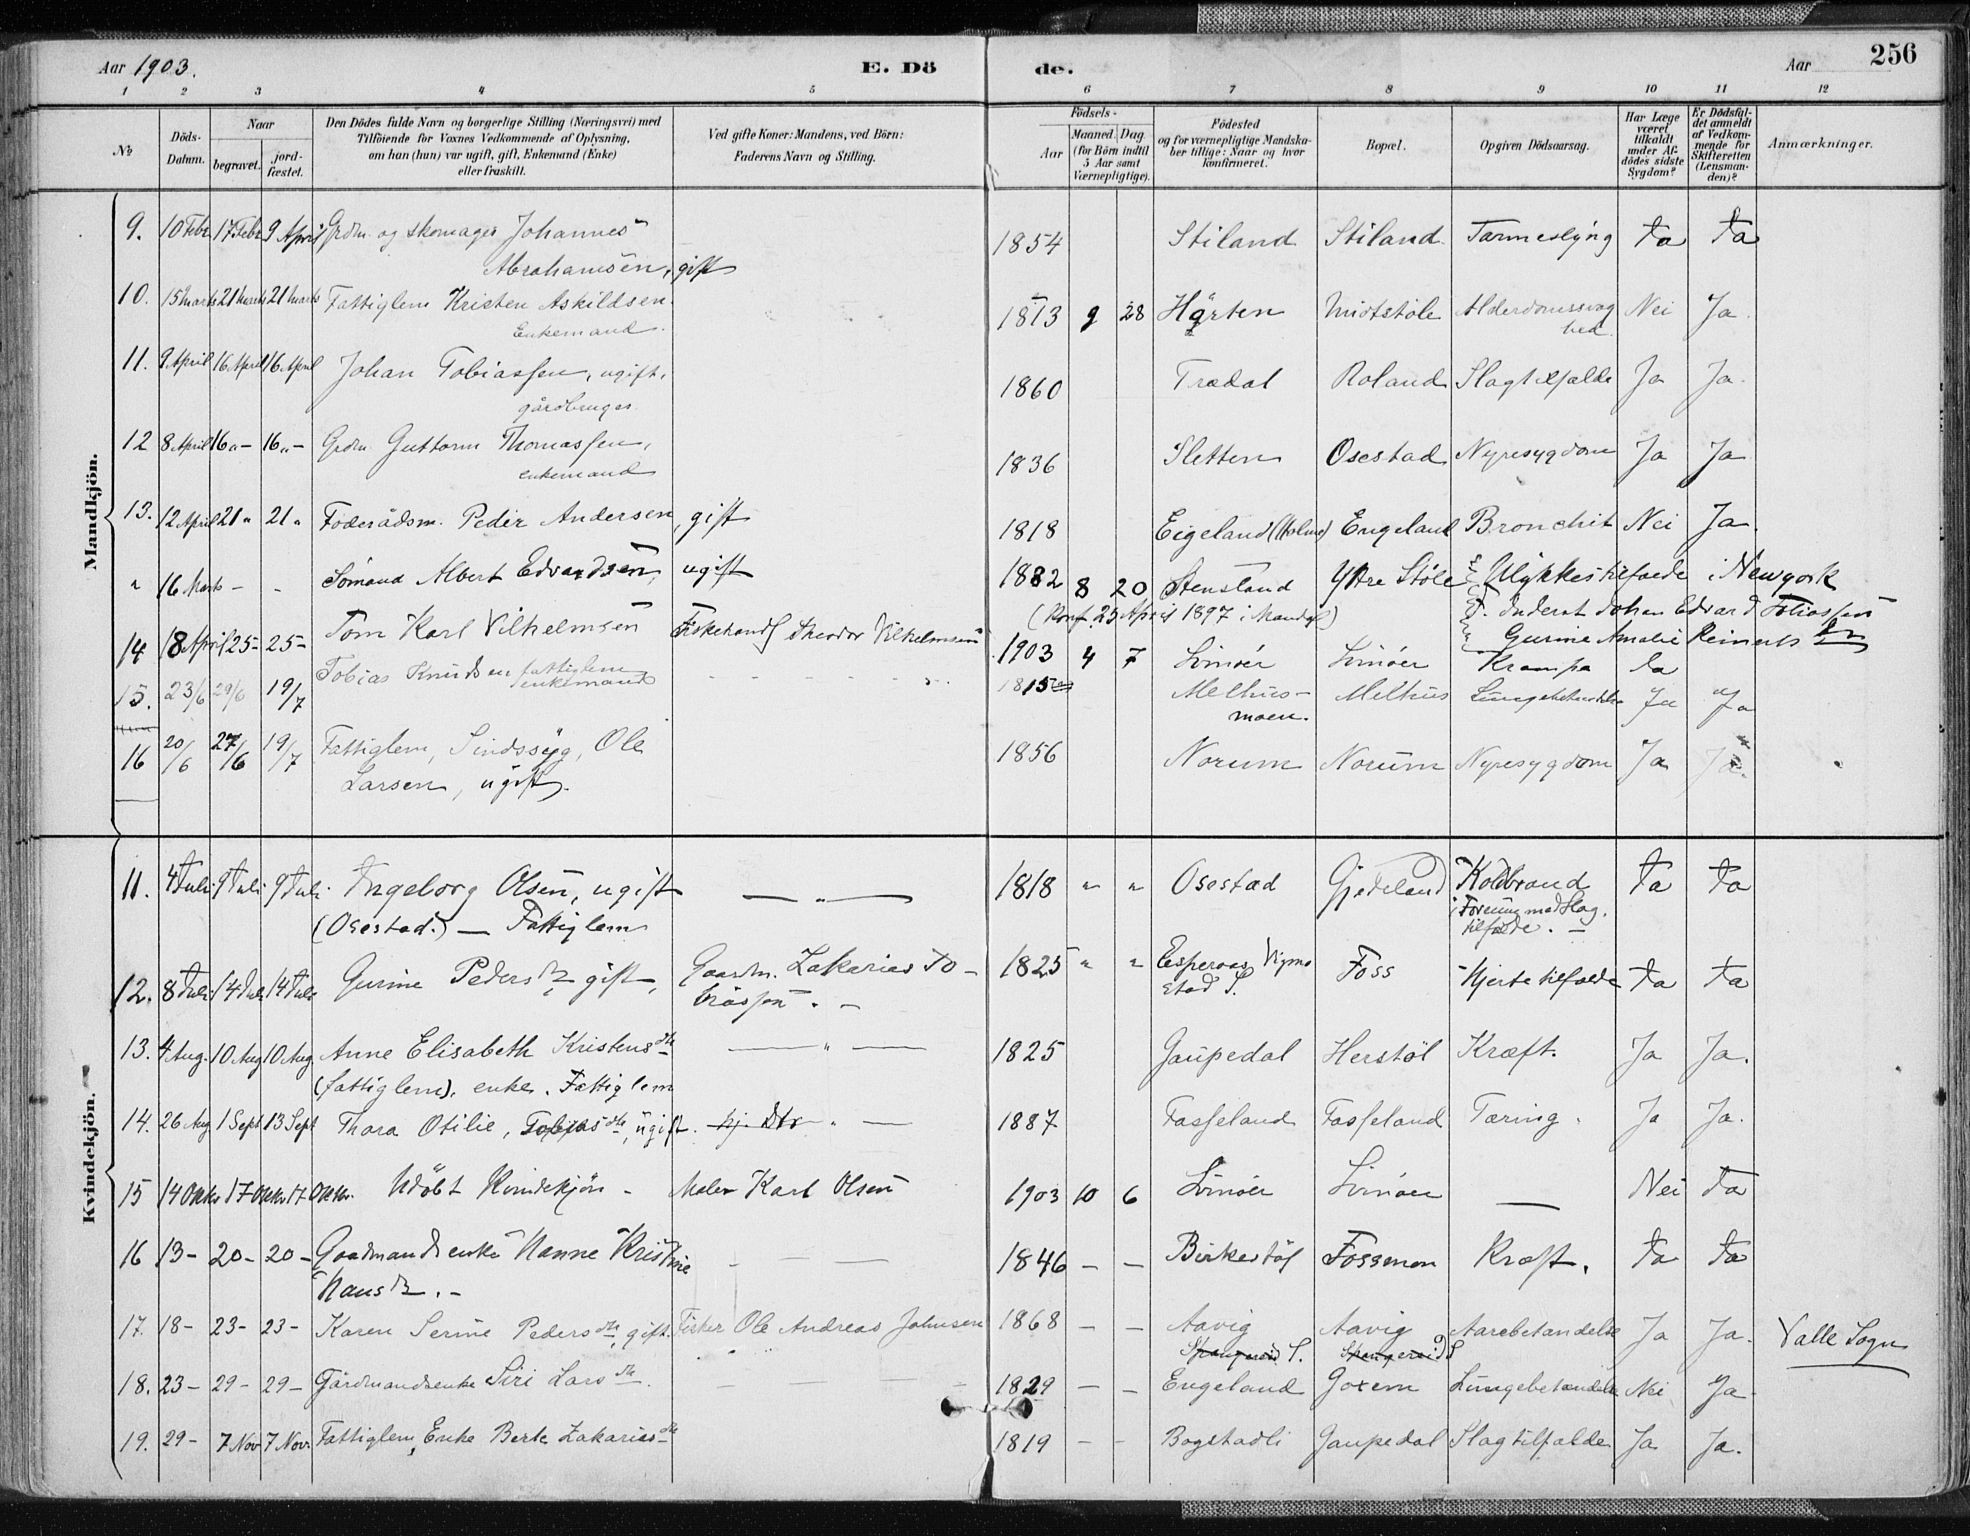 Aar 1903. E. Dö de. Aar 256
1 2 3 4 5 6 7 8 9 10 11 12
№ Döds-Datum. Naar begravet. jord-fæstet. Den Dödes fulde Navn og borgerlige Stilling (Næringsvei) med Tilföiende for Voxnes Vedkommende af Oplysning, om han (hun) var ugift, gift, Enkemand (Enke) eller fraskilt. Ved gifte Koner: Mandens, ved Börn: Faderens Navn og Stilling. Födsels- Aar Maaned. Dag. (for Börn indtil 5 Aar samt Værnepligtige). Födested og for værnepligtige Mandskaber tillige: Naar og hvor konfirmeret. Bopæl. Opgiven Dödsaarsag. Har Læge været tilkaldt under Afdödes sidste Sygdom? Er Dödsfaldet anmeldt af Vedkommende for Skifteretten (Lensmanden)? Anmærkninger.
Mandkjön.
9. 10 Febr 17 Febr 9 April Grdm. og skomager Johannes 1854 Stiland Stiland Tarmeslyng Ja Ja
Abrahamsen, gift
10. 15 Marts 21 Marts 21 Marts Fattiglem Kristen Askildsen 1813 9 28 Hårten Midtstøle Alderdomssvag Nei Ja
Enkemand. hed
11. 9 April 16 April 16 April Johan Tobiassen, ugift, 1860 Trædal Roland Slagtilfælde Ja Ja.
gårdbruger
12 8 April 16 „ - 16 „ - Grdm. Guttorm Thomassen, 1836 Sletten Osestad Nyresygdom Ja Ja
enkemand
13. 12 April 21 „ 21 „ Föderådsm. Peder Andersen, gift 1818 Eigeland (Holme) Engeland Bronchit Nei Ja
„ 16 Marts - - Sömand Albert Edvardsen, ugift 1882 8 20 Stensland Ytre Støle Ulykkestilfælde i Newyork
(Konf. 25 April 1897 i Mandal) Johan Edvard
14 18 April 25 - 25 - Tom Karl Vilhelmsen Fiskehandl Theodor Vilhelmsen 1903 4 7 Svinöer Svinöer Krampe Ja
Gurine Amalie Reinerts
15. 23/6 29/6 19/7 Tobias Knudsen fattiglem enkemand 1815 Melhus- Melhus Lungebetændelse Ja Ja
moen.
16 20/6 27/6 19/7 Fattiglem, Sindssyg, Ole 1856 Norum Norum Nyresygdom Ja Ja.
Larsen, ugift.
Kvindekjön.
11. 4 Juli 9 Juli 9 Juli Ingeborg Olsen, ugift — „ — 1818 „ „ Osestad Gjedeland Koldbrand Ja Ja
(Osestad.) — Fattiglem i Forening med Slag-
tilfælde. —
12. 8 Juli 14 Juli 14 Juli Gurine Pedersdtr, gift, Gaardm. Zakarias To- 1825 „ „ Foss Hjertetilfælde Ja Ja
biassen. -
13. 4 Aug. 10 Aug 10 Aug Anne Elisabeth Kristensdtr — „ — 1825 Gaupedal Herstöl Kræft. Ja Ja.
(fattiglem), enke. Fattiglem
14. 26 Aug 1 Sept 13 Sept Thora Otilie, Tobiasdtr, ugift. „ — 1887 Fasseland Fasseland Tæring. Ja Ja.
15 14 Oktbr 17 Oktbr 17 Oktbr. Udöbt Kvindekjön - Maler Karl Olsen 1903 10 6 Svinöer Svinöer — Nei Ja
16 13 - 20 - 20 - Gaardmandsenke Hanne Kristine - — 1846 - - Birkestöl Fossemon Kræft. Ja Ja
Hansdtr. -
17. 18 - 23 - 23 - Karen Serine Pedersdtr, gift. Fisker Ole Andreas Johnsen 1868 - - Aavig Aavig Aarebetændelse Ja Ja. Valle Sogn
Spangereid S. Spangereid S
18. 23 - 29 - 29 - Gårdmandsenke Siri Larsdtr. 1829 - - Engeland Goxem Lungebetændelse Nei Ja
19. 29 - 7 Nov 7 Nov. Fattiglem, Enke Berte Zakariasdtr 1819 - - Bogstadli Gaupedal Slagtilfælde Ja Ja.